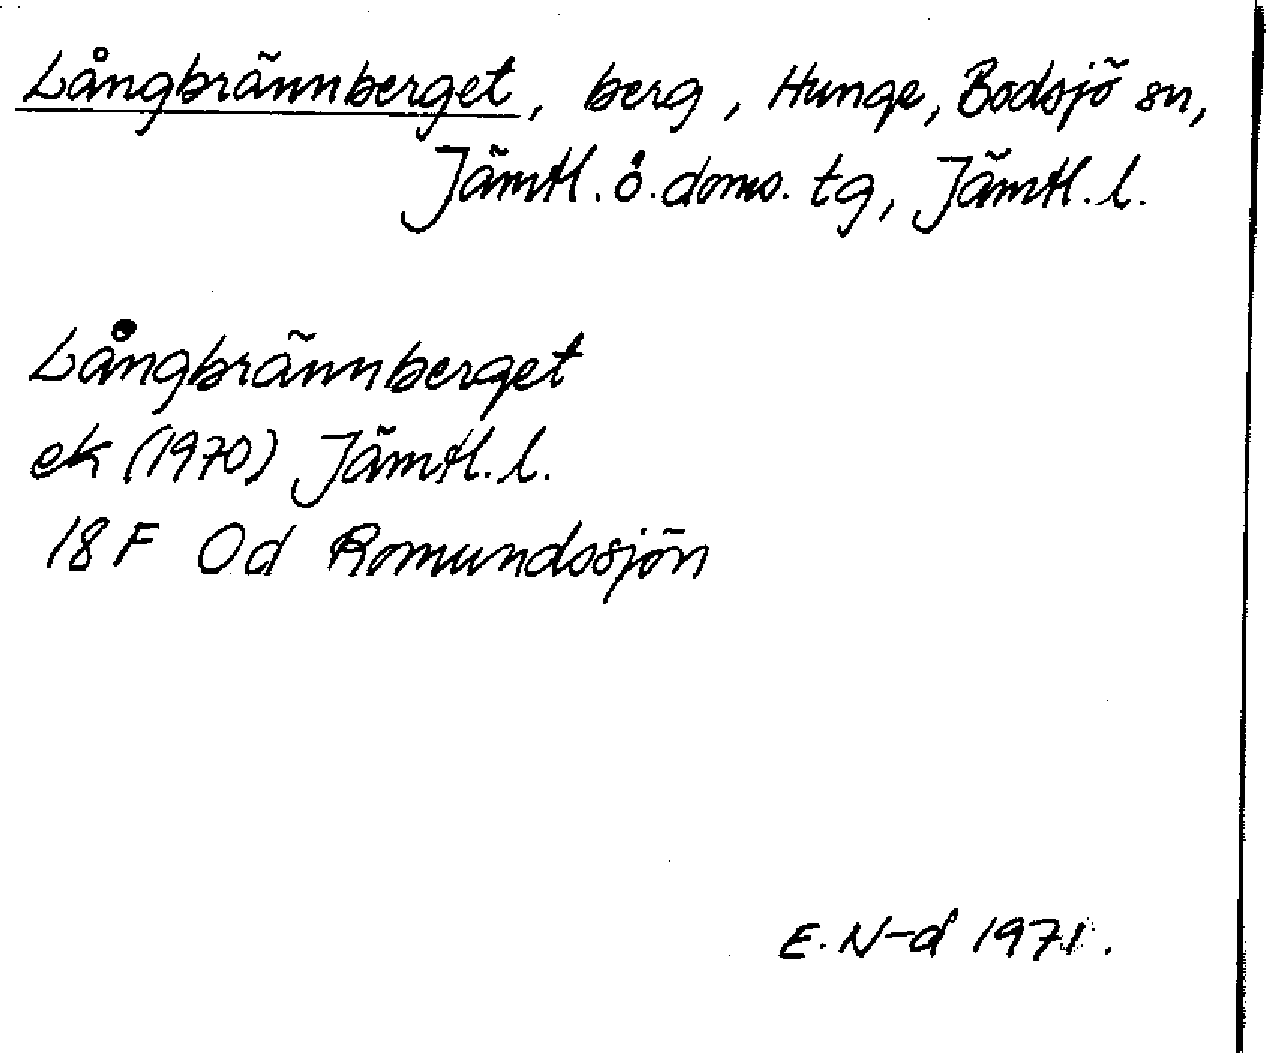 Långbrännberget, berg, Hunge, Bodsjö sn,
Jämtl. ö. doms. tg, Jämtl. l.
Långbrännberget
ek (1970) Jämtl. l.
18 F Od Romundssjön
E. N-d 1971.